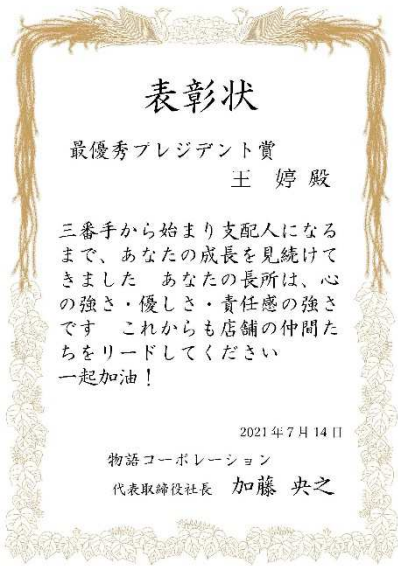 表彰状
最優秀プレジデント賞
王　婷 殿
三番手から始まり支配人になる
まで、あなたの成長を見続けて
きました　あなたの長所は、心
の強さ・優しさ・責任感の強さ
です　これからも店舗の仲間た
ちをリードしてください
一起加油！
2021年7月14日
物語コーポレーション
代表取締役社長　加藤 央之